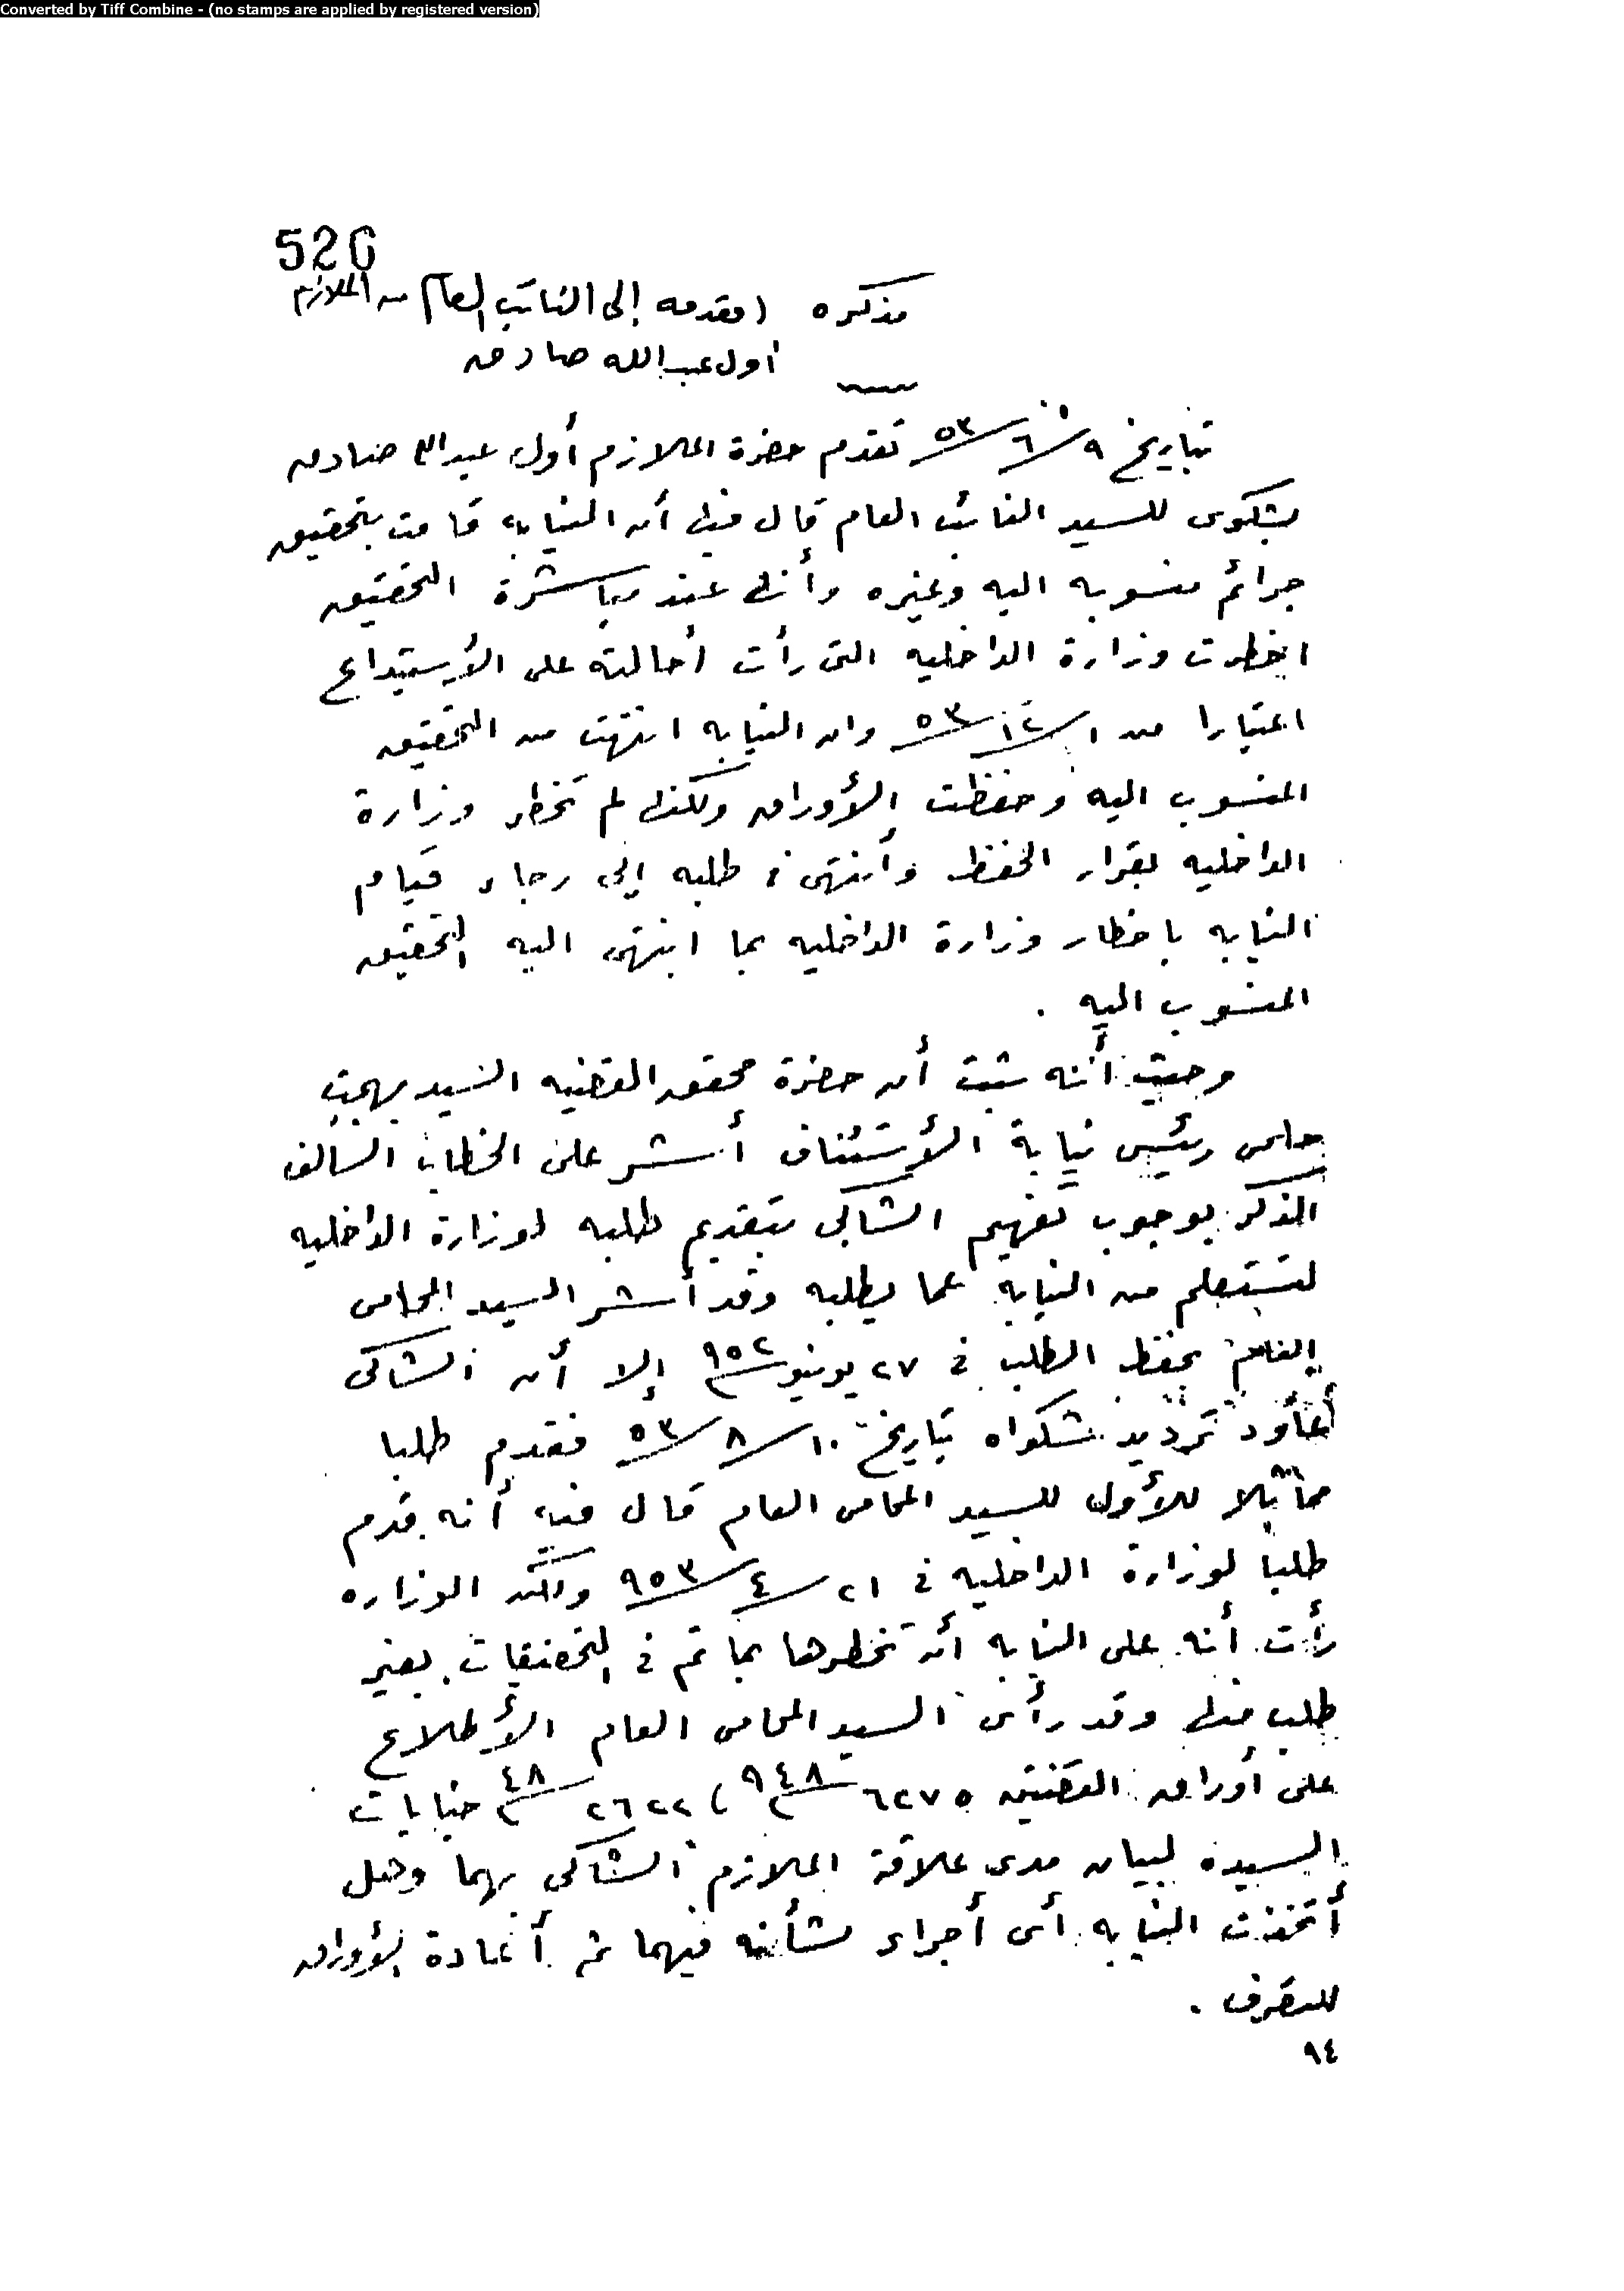 Converted by Tiff Combine - (no stamps are applied by registered version)
526
مذكره (مقدمه إلى النائب العام من الملازم
أول عبد الله صادق
بتاريخ ٩/٦/٥٣ تقدم حضرة الملازم أول عبد الله صادق
بشكوى للسيد النائب العام قال فيها أن النيابه قامت بتحقيق
جرائم منسوبه اليه وغيره وأنها عند مباشرة التحقيق
اخطرت وزارة الداخليه التى رأت أحالته على الأستيداع
اعتبارا من ١/١٢/٥٣ وان النيابه انتهت من التحقيق
المنسوب اليه وحفظت الأوراق ولكنها لم تخطر وزارة
الداخليه بقرار الحفظ وأنتهى فى طلبه إلى رجاء قيام
النيابه باخطار وزارة الداخليه بما انتهى اليه التحقيق
المنسوب اليه .
وحيث أنه ثبت أن حضرة محقق القضيه السيد بهجت
حلمى رئيس نيابة الأستئناف أشر على الخطاب السالف
الذكر بوجوب تفهيم الشاكى بتقديم طلبه لوزارة الداخليه
لتستعلم من النيابه عما يطلبه وقد أشر السيد المحامى
العام بحفظ الطلب فى ٢٧ يونيو ٩٥٢ إلا أن الشاكى
أعاود ترديد شكواه بتاريخ ١٠/٨/٥٣ فقدم طلبا
مماثلا للأول للسيد المحامى العام قال فيه أنه قدم
طلبا لوزارة الداخليه فى ٢١/٤/٩٥٣ ولكن الوزاره
رأت أنه على النيابه أن تخطرها بما تم فى التحقيقات بغير
طلب منها وقد رأى السيد المحامى العام الأطلاع
على أوراق القضيتين ٦٢٧٥ سنة ٩٤٨ ، ٢٦٢٢ سنة ٤٨ جنايات
السيده لبيان مدى علاقة الملازم الشاكى بهما وهل
أتخذت النيابه أى أجراء بشأنه فيهما ثم أعادة الأوراق
للتصرف .
٩٤